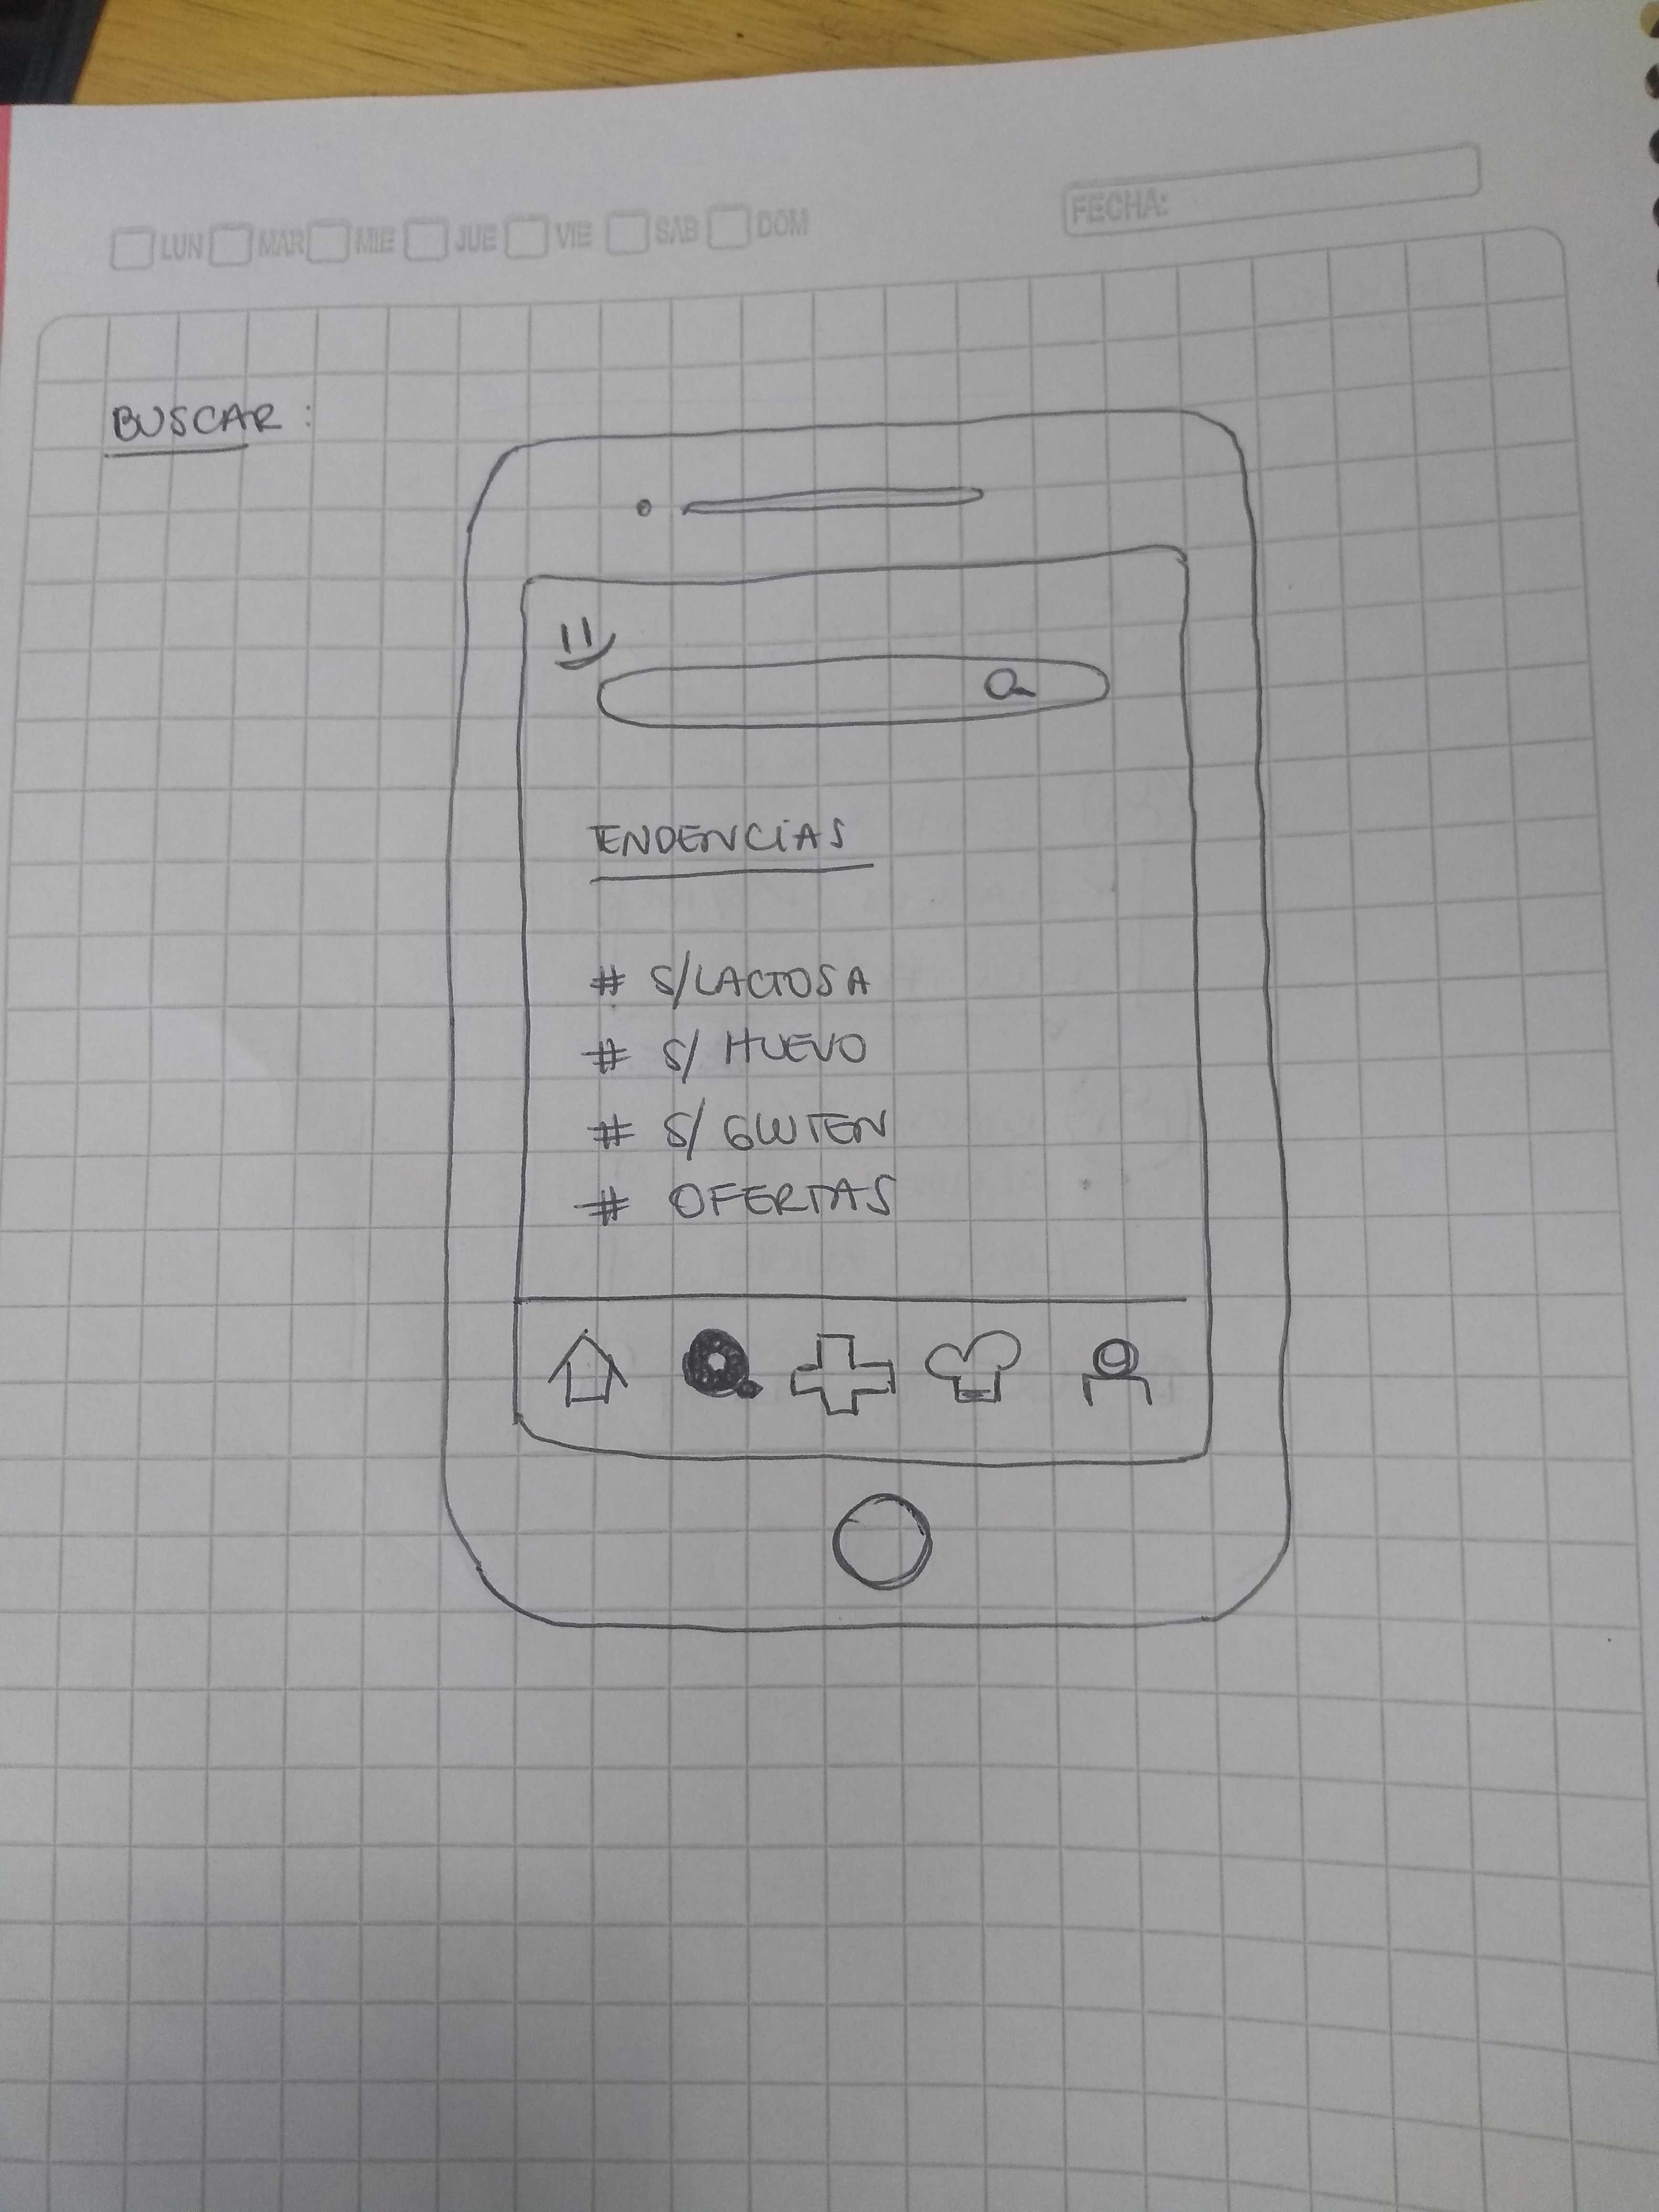 LUN MAR MIE JUE VIE SAB DOM
FECHA:
BUSCAR:
TENDENCIAS
# S/LACTOSA
# S/ HUEVO
# S/ GLUTEN
# OFERTAS